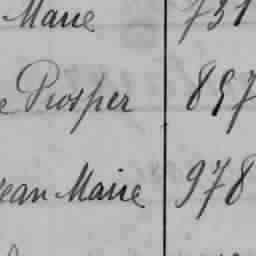 Marie 731
e Prosper 857
Jean Marie 978